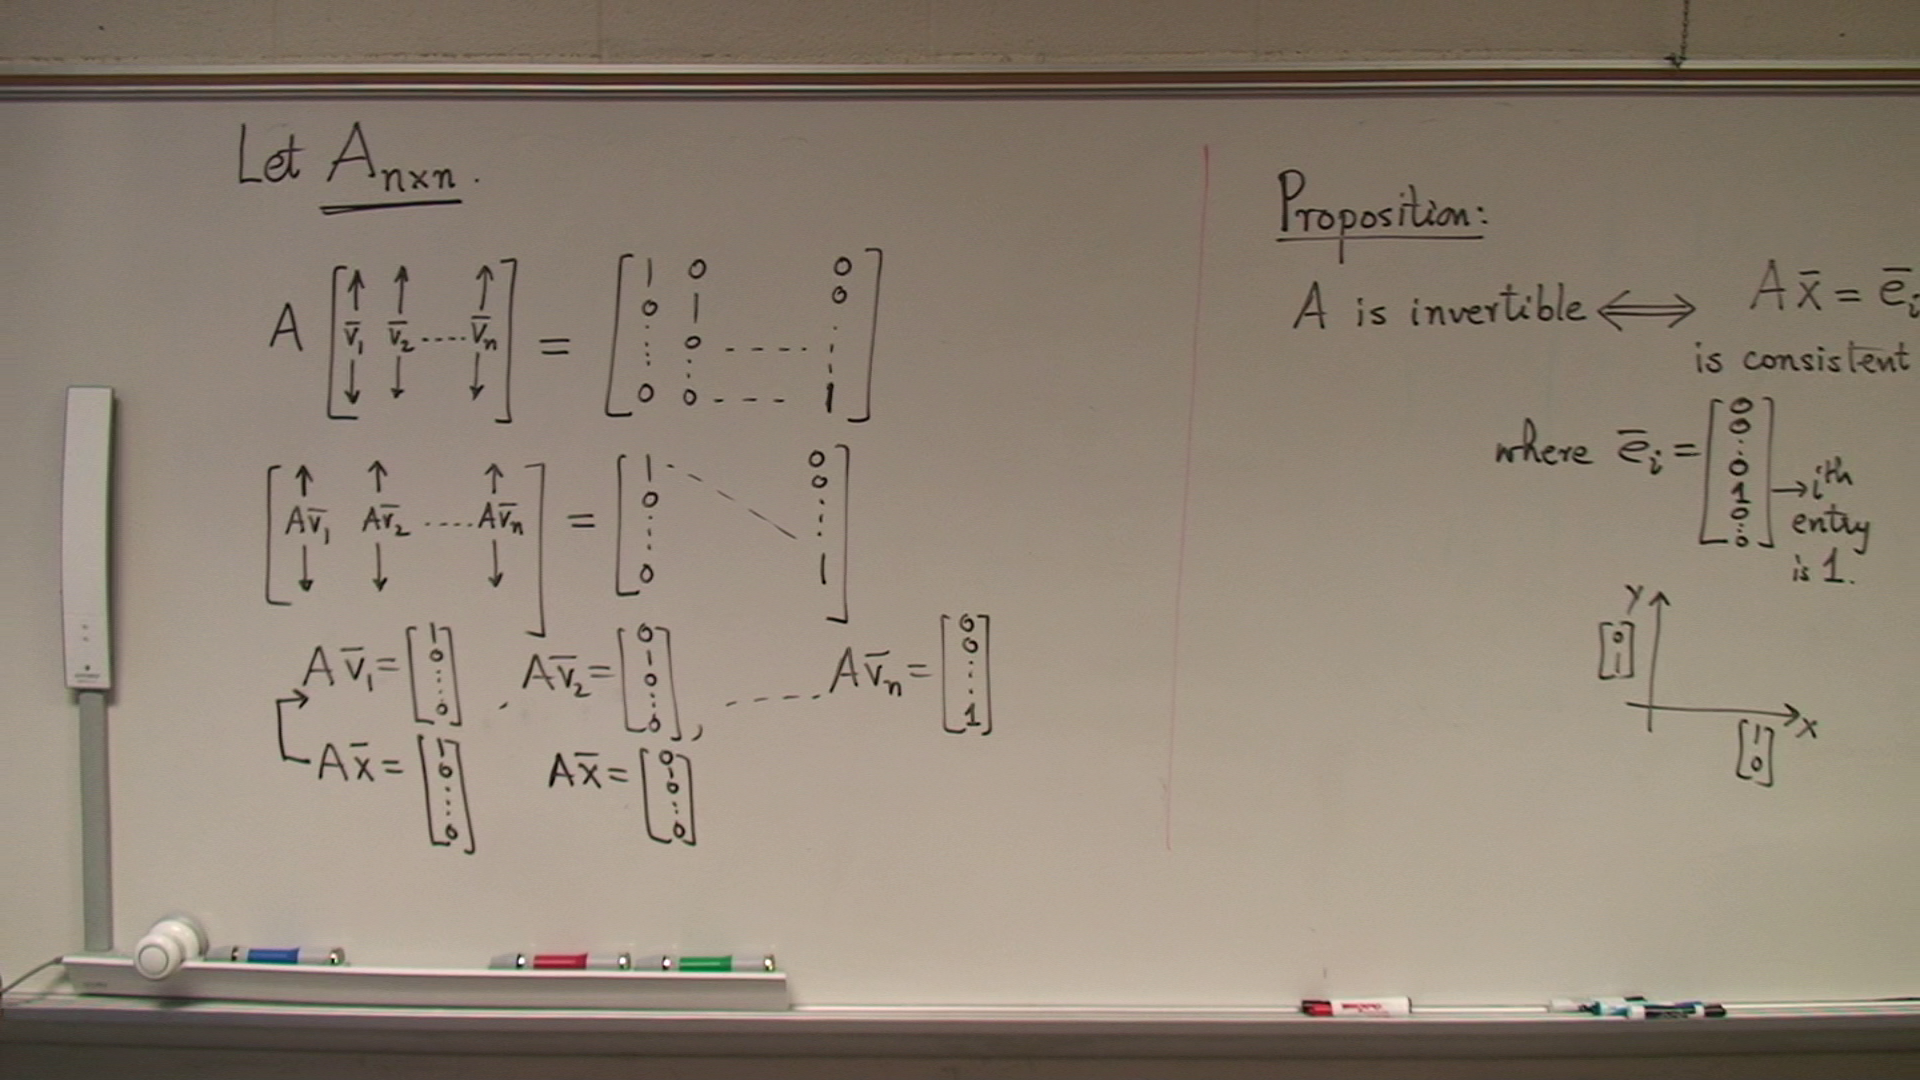 Let A n×n.
A [ v̄1 v̄2 ..... v̄n ] = [ 1 0 0
0 1 0
⋮ 0 - - - - ⋮
0 0 - - - 1 ]
[ Av̄1 Av̄2 ..... Av̄n ] = [ 1 0
0 0
⋮ ⋮
0 1 ]
A v̄1 = [ 1 0 ⋮ 0 ] , A v̄2 = [ 0 1 0 ⋮ 0 ], - - - - A v̄n = [ 0 0 ⋮ 1 ]
A x̄ = [ 1 0 ⋮ 0 ] A x̄ = [ 0 1 0 ⋮ 0 ]
Proposition:
A is invertible ⟺ A x̄ = ēi
is consistent
where ēi = [ 0 0 ⋮ 0 1 0 ⋮ 0 ] → ith
entry
is 1.
Y
[ 0 1 ]
X
[ 1 0 ]